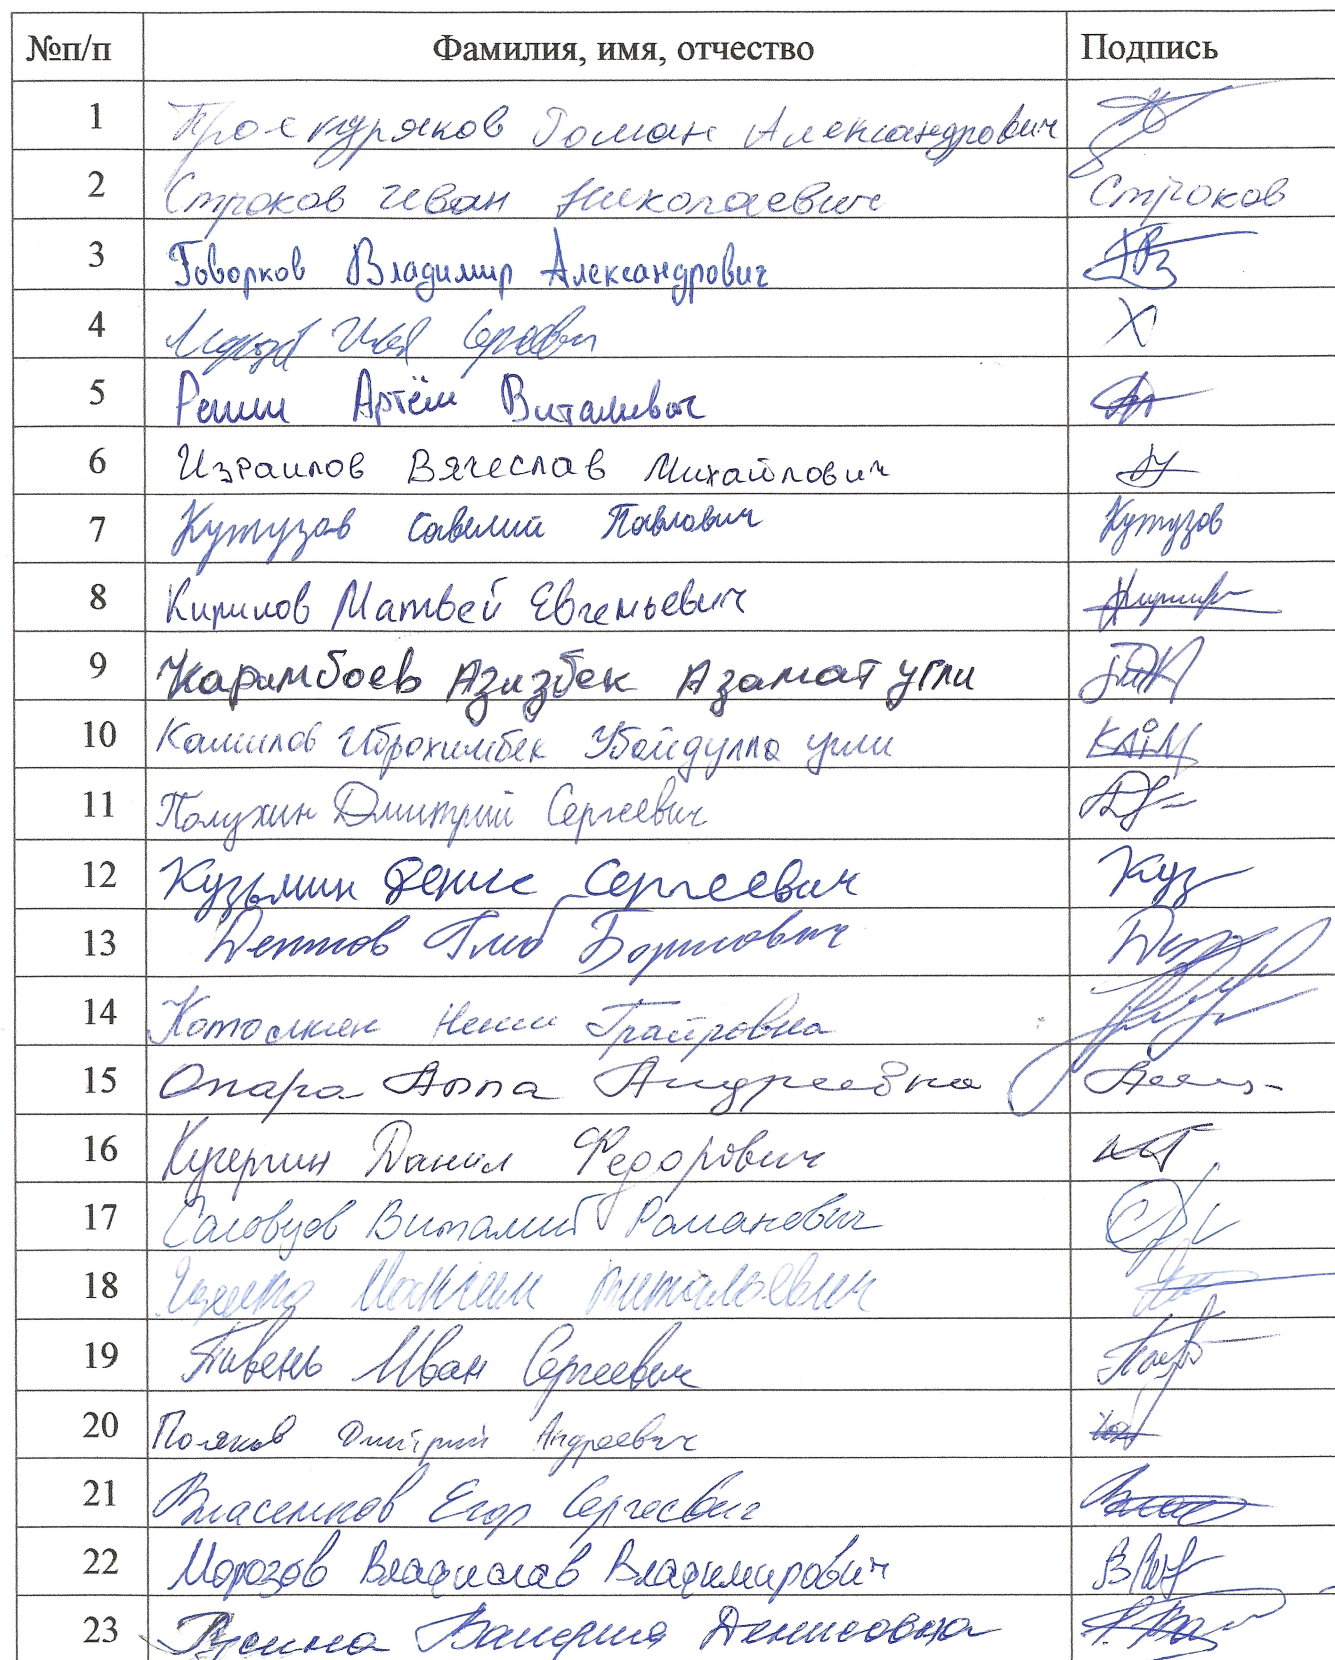 №п/п Фамилия, имя, отчество Подпись
1 Проскуряков Роман Александрович
2 Строков Иван Николаевич Строков
3 Говорков Владимир Александрович
4 Илья Сергеевич
5 Репин Артём Витальевич
6 Израилов Вячеслав Михайлович
7 Кутузов Савелий Павлович Кутузов
8 Кирилов Матвей Евгеньевич
9 Каримбоев Азизбек Азамат угли
10 Камилов Иброхимбек Убайдулла угли
11 Полухин Дмитрий Сергеевич
12 Кузьмин Денис Сергеевич Куз
13 Глеб Борисович
14
15 Опара Анна Андреевна
16 Кучергин Данил Федорович
17 Соловцов Виталий Романович
18 Максим Витальевич
19 Пивень Иван Сергеевич
20 Поляков Дмитрий Андреевич
21 Власенков Егор Сергеевич
22 Морозов Владислав Владимирович
23 Валерия Денисовна